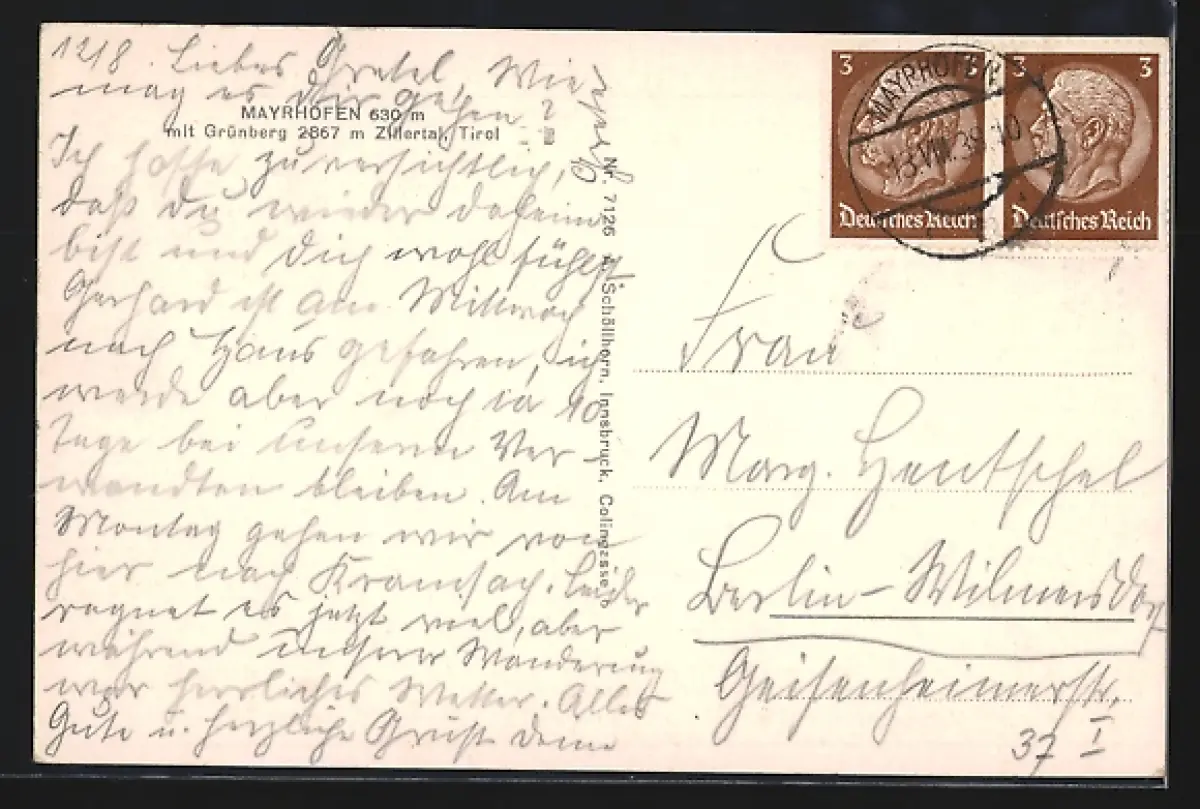 12/8. Liebes Gretel, Wie
mag es Dir gehen?
MAYRHOFEN 630 m
mit Grünberg 2867 m Zillertal, Tirol
Ich hoffe zuversichtlich,
daß Du wieder daheim
bist und Dich wohl fühlst.
Gerhard ist am Mittwoch
nach Haus gefahren, ich
werde aber noch ca 10
Tage bei unseren Ver-
wandten bleiben. Am
Montag gehen wir von
hier nach Kramsach. Leider
regnet es jetzt viel, aber
während unserer Wanderung
war herrliches Wetter. Alles
Gute u. herzliche Grüße Deine
Nr. 7126 A. Schöllhorn, Innsbruck, Colingasse
3 3
Deutsches Reich
3 3
Deutsches Reich
MAYRHOFEN
13.VIII.39.10
Frau
Marg. Hentschel
Berlin-Wilmersdorf
Geisenheimerstr.
37 I